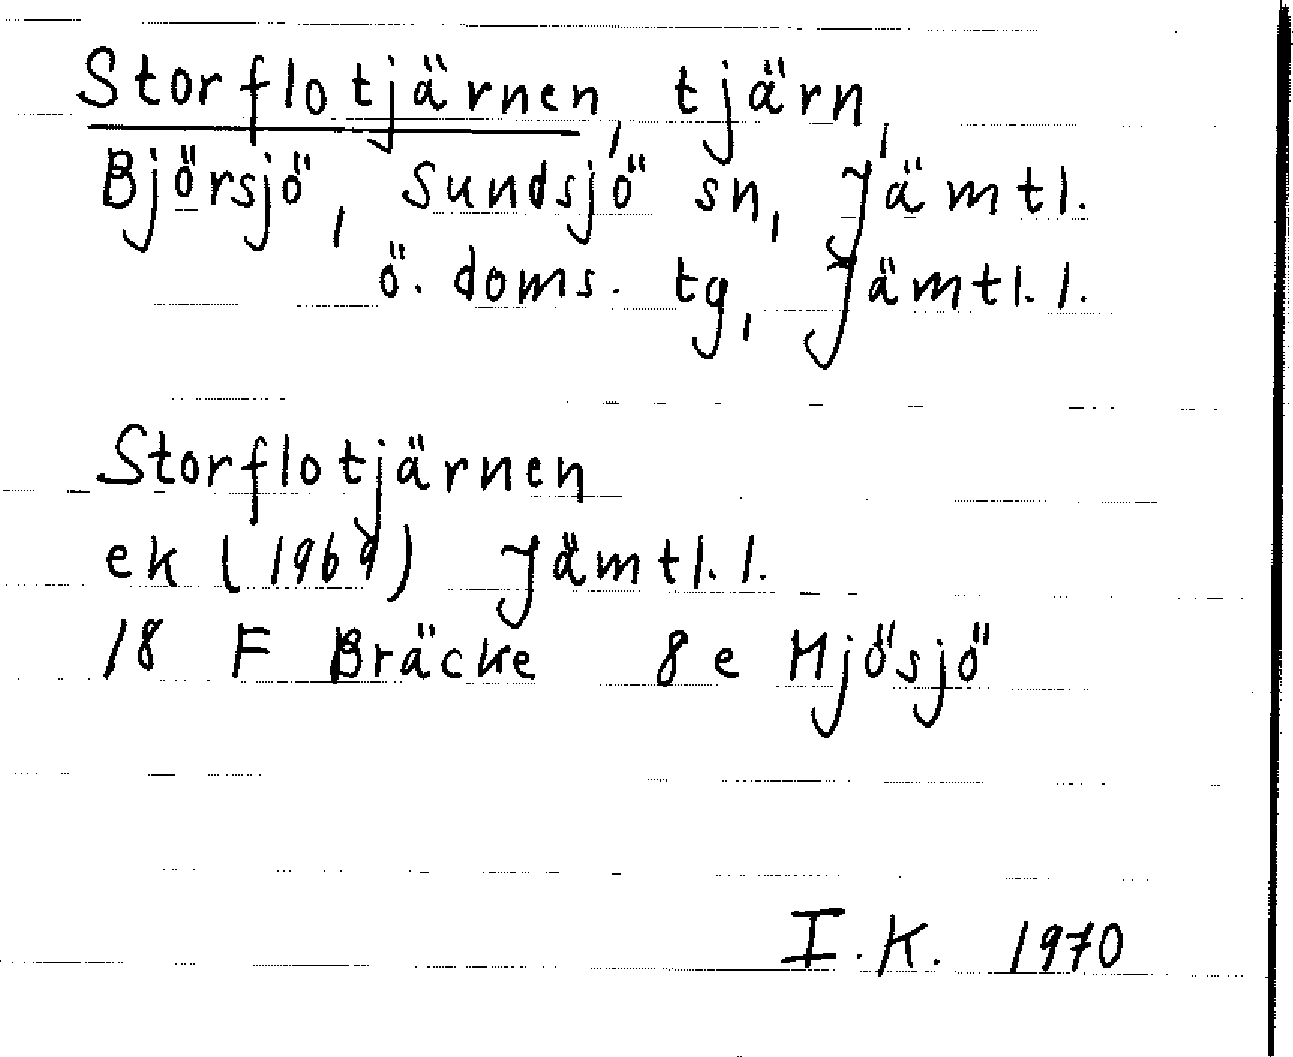 Storflotjärnen, tjärn,
Björsjö, Sundsjö sn, Jämtl.
ö. doms. tg, Jämtl. l.
Storflotjärnen
ek (1969) Jämtl. l.
18 F Bräcke 8e Mjösjö
I. K. 1970